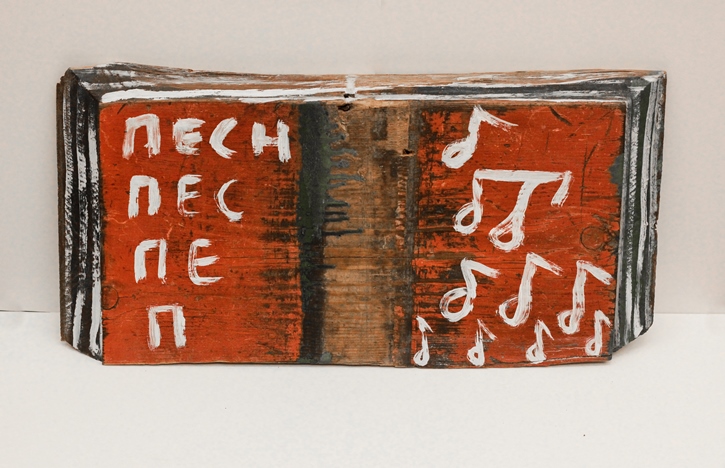 ПЕСН
ПЕС
ПЕ
П